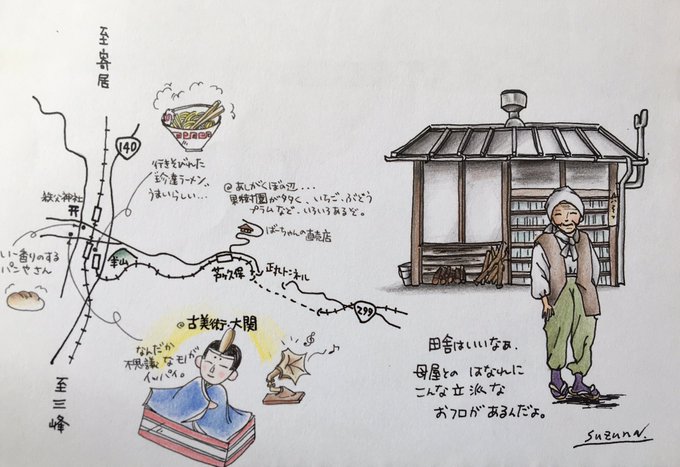 至寄居
140
行きそびれた
珍達ラーメン。
うまいらしい…
秩父神社
@あしがくぼの辺...
果樹園が多く、いちご、ぶどう
プラムなど、いろいろあるぞ。
ばーちゃんの直売店
いー香りのする
パンやさん
芦ヶ久保
正丸トンネル
299
@古美術・大関
なんだか
不思議なモノが
イッパイ。
至三峰
田舎はいいなぁ、
母屋との はなれに
こんな立派な
おフロがあるんだよ。
suzunN.